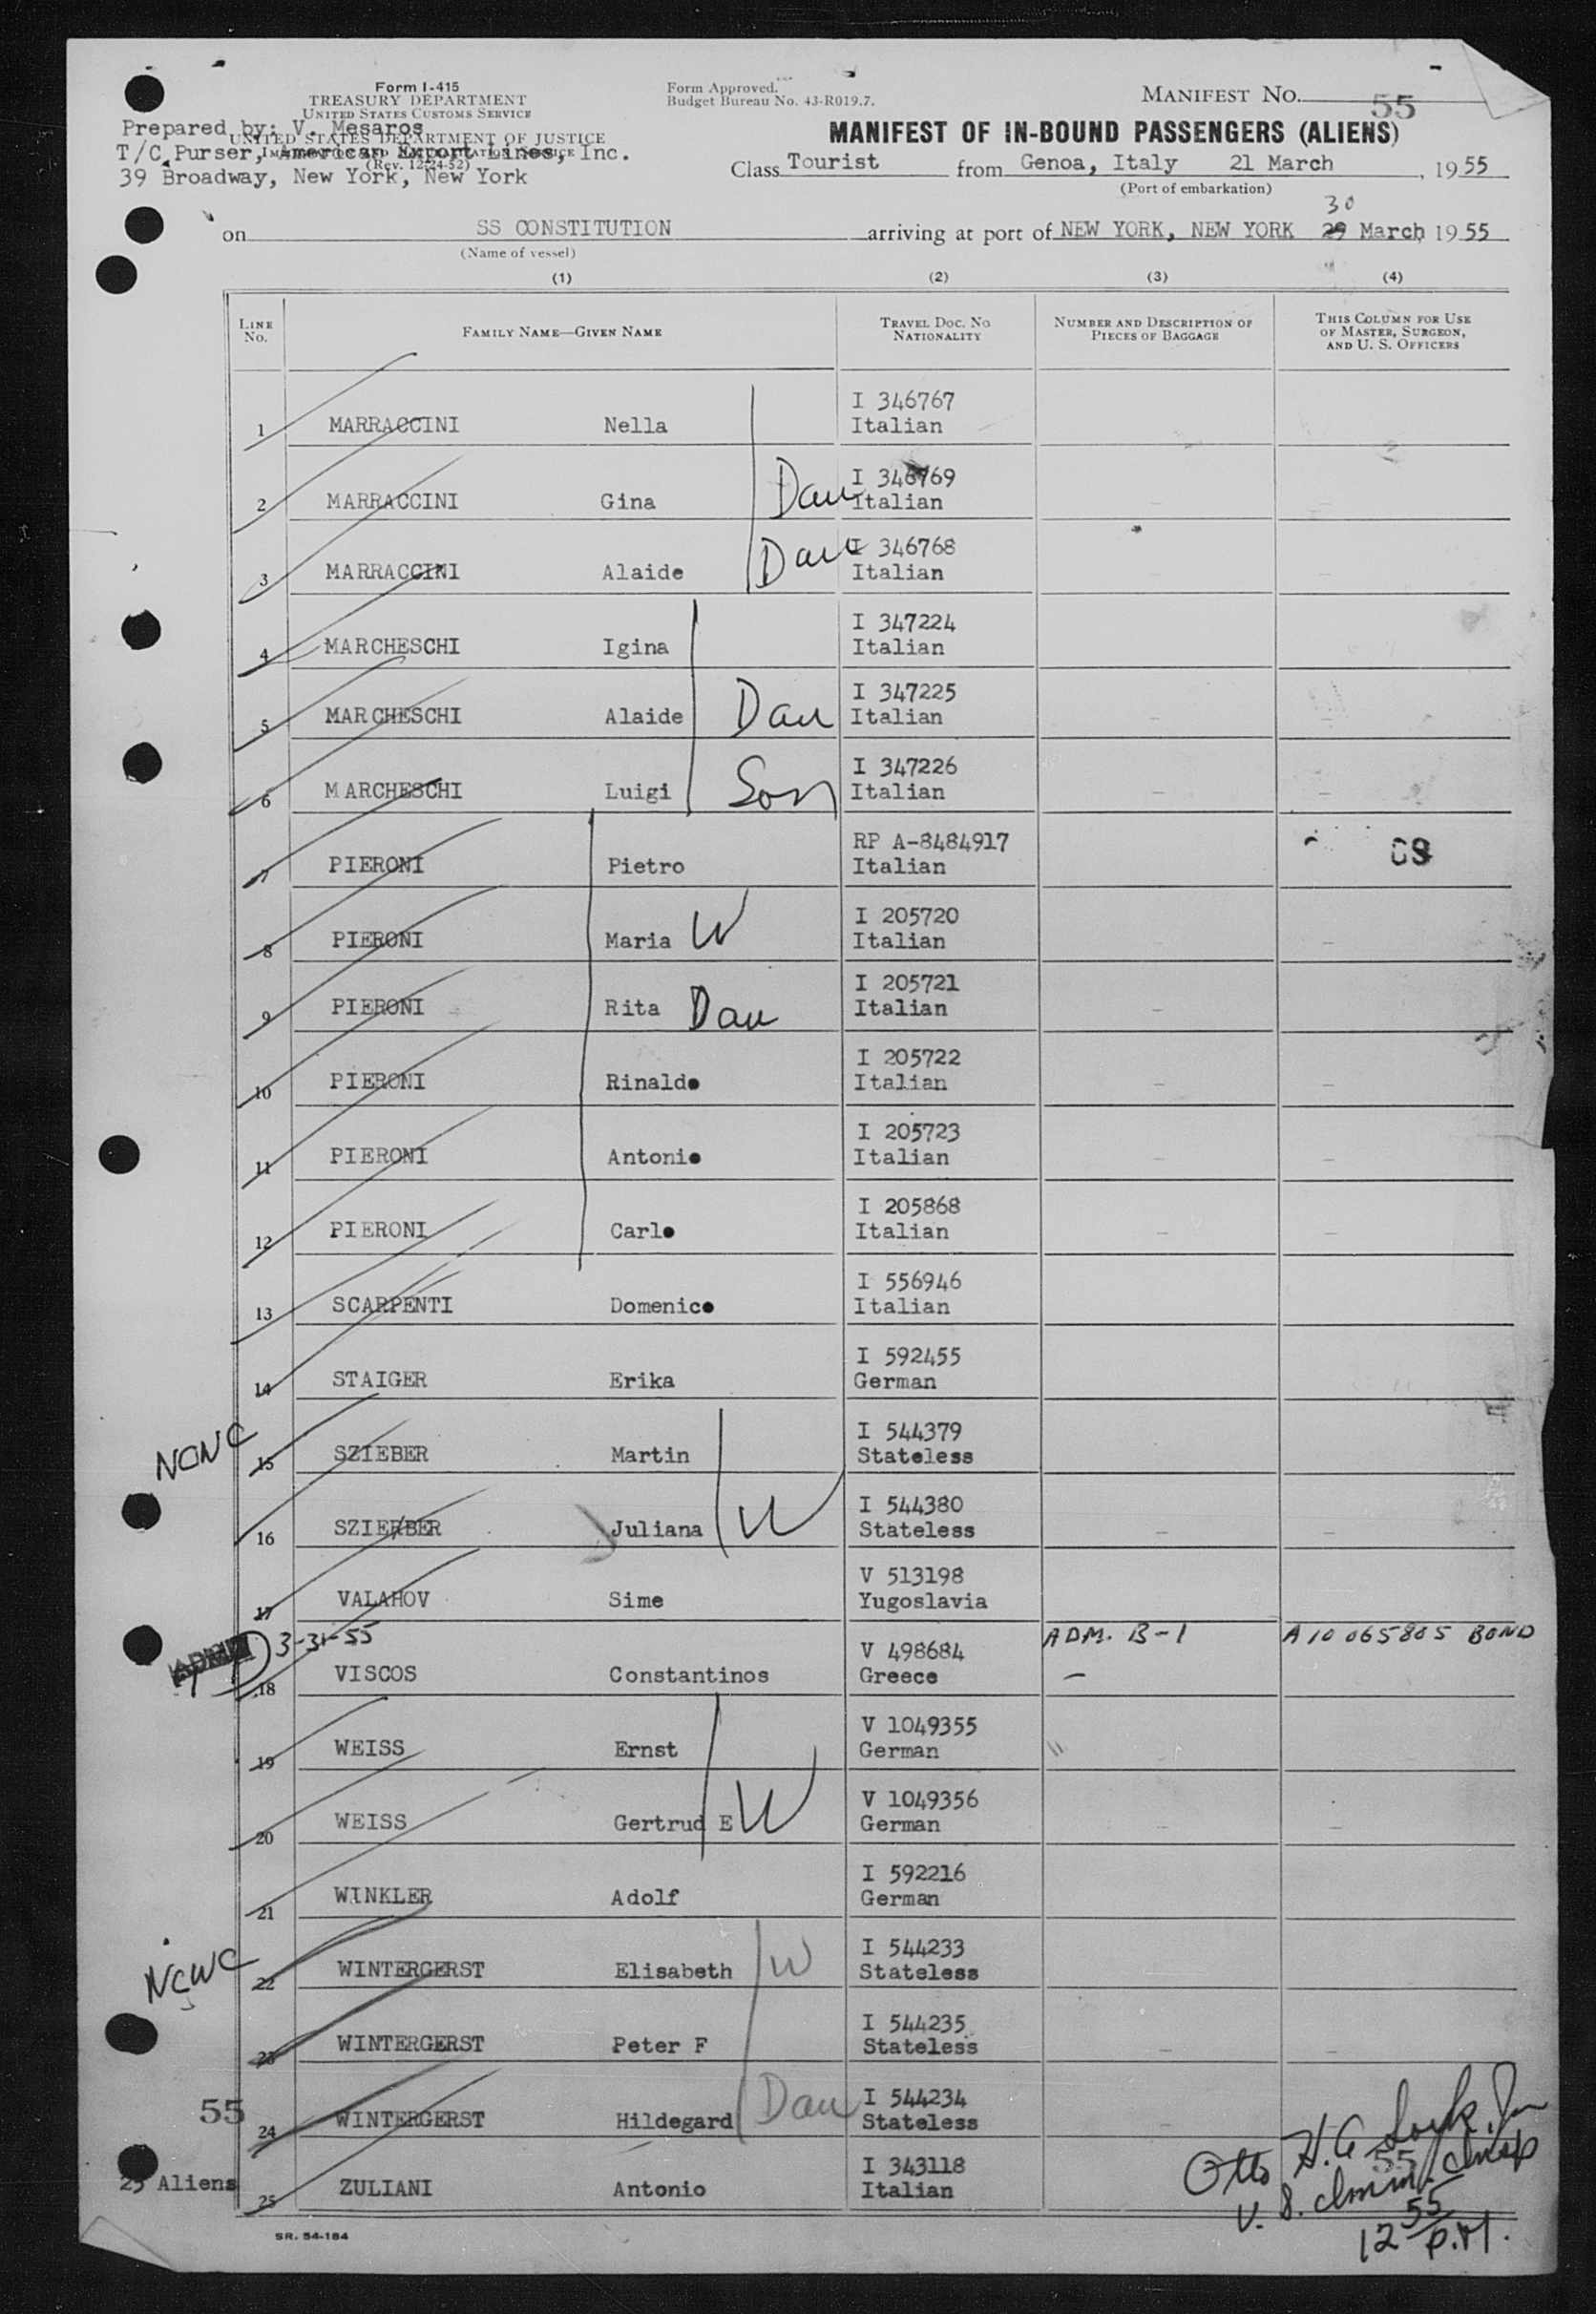 Form I-415
TREASURY DEPARTMENT
UNITED STATES CUSTOMS SERVICE
Prepared by: V. Mesaros
UNITED STATES DEPARTMENT OF JUSTICE
T/C Purser, American Export Lines, Inc.
(Rev. 12-24-52)
39 Broadway, New York, New York
Form Approved.
Budget Bureau No. 43-R019.7.
MANIFEST NO. 55
MANIFEST OF IN-BOUND PASSENGERS (ALIENS)
Class Tourist from Genoa, Italy 21 March, 1955
(Port of embarkation)
30
on SS CONSTITUTION arriving at port of NEW YORK, NEW YORK 29 March 1955
(Name of vessel)
(1) (2) (3) (4)
LINE No. FAMILY NAME—GIVEN NAME TRAVEL DOC. No. NATIONALITY NUMBER AND DESCRIPTION OF PIECES OF BAGGAGE THIS COLUMN FOR USE OF MASTER, SURGEON, AND U. S. OFFICERS
I 346767
1 MARRACCINI Nella Italian
I 346769
2 MARRACCINI Gina Dau Italian
I 346768
3 MARRACCINI Alaide Dau Italian
I 347224
4 MARCHESCHI Igina Italian
I 347225
5 MARCHESCHI Alaide Dau Italian
I 347226
6 MARCHESCHI Luigi Son Italian
RP A-8484917
7 PIERONI Pietro Italian
I 205720
8 PIERONI Maria W Italian
I 205721
9 PIERONI Rita Dau Italian
I 205722
10 PIERONI Rinaldo Italian
I 205723
11 PIERONI Antonio Italian
I 205868
12 PIERONI Carlo Italian
I 556946
13 SCARPENTI Domenico Italian
I 592455
14 STAIGER Erika German
I 544379
15 SZIEBER Martin Stateless
I 544380
16 SZIEBER Juliana W Stateless
V 513198
17 VALAHOV Sime Yugoslavia
3-31-55 ADM. B-1 A10 065805 BOND
V 498684
18 VISCOS Constantinos Greece
V 1049355
19 WEISS Ernst German
V 1049356
20 WEISS Gertrud E W German
I 592216
21 WINKLER Adolf German
NCWC
I 544233
22 WINTERGERST Elisabeth W Stateless
I 544235
23 WINTERGERST Peter F Stateless
55
I 544234
24 WINTERGERST Hildegard Dau Stateless
I 343118
25 Aliens 25 ZULIANI Antonio Italian
55
U. S. Imm. Insp
12 55 P.M.
SR. 54-184